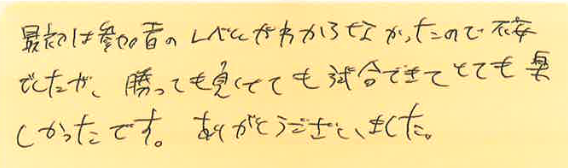 最初は参加者のレベルがわからなかったので不安
でしたが、勝っても負けても試合できてとても楽
しかったです。ありがとうございました。